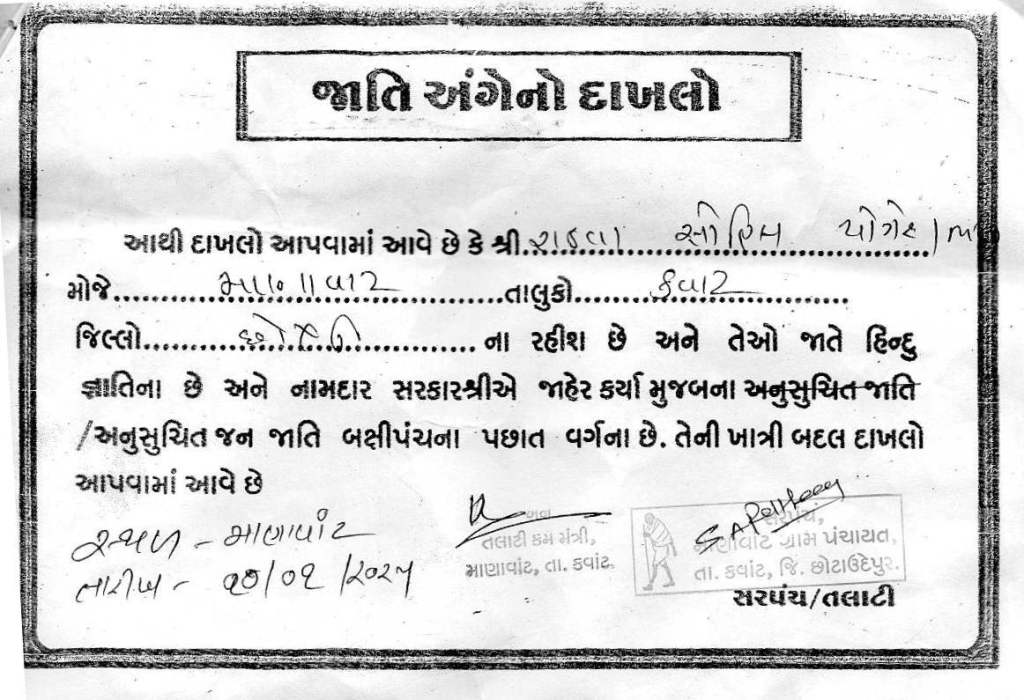 જાતિ અંગેનો દાખલો
આથી દાખલો આપવામાં આવે છે કે શ્રી. રાઠવા
મોજે............તાલુકો......કવાંટ
જિલ્લો............ના રહીશ છે અને તેઓ જાતે હિન્દુ
જ્ઞાતિના છે અને નામદાર સરકારશ્રીએ જાહેર કર્યા મુજબના અનુસુચિત જાતિ
/અનુસુચિત જન જાતિ બક્ષીપંચના પછાત વર્ગના છે. તેની ખાત્રી બદલ દાખલો
આપવામાં આવે છે
સ્થળ - માણાવાંટ
તારીખ -
તલાટી કમ મંત્રી,
માણાવાંટ, તા. કવાંટ.
સરપંચ,
માણાવાંટ ગ્રામ પંચાયત,
તા. કવાંટ, જિ. છોટાઉદેપુર.
સરપંચ/તલાટી